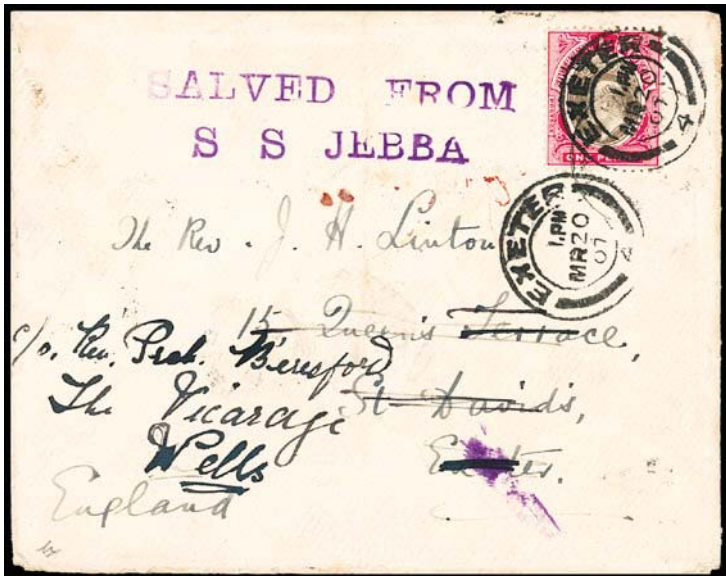 SALVED FROM
S S JEBBA
EXETER
1.PM
MR 20
07
4
ONE PENNY
EXETER
1.PM
MR 20
07
4
The Rev. J. H. Linton
15 Queen's Terrace,
St. David's,
Exeter.
c/o. Rev. Preb. Beresford
The Vicarage
Wells
England